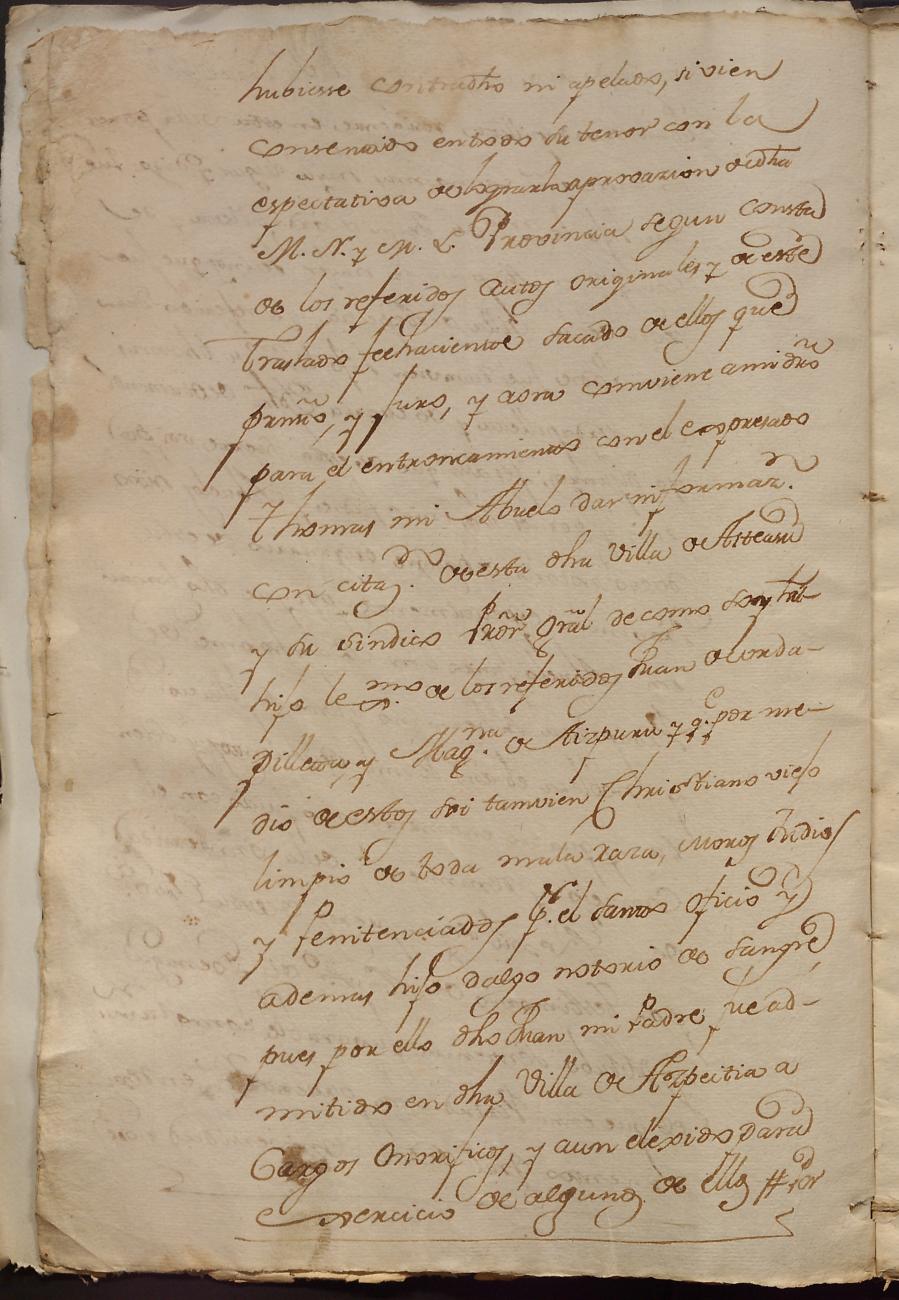 hubiesse contradho ni apelado, si vien
consentido en todo su tenor con la
espectativa de lograrla aprovazion de dha
M. N. y M. L. Provincia segun consta
de los referidos autos originales y de este
traslado feehaciente sacado de ellos que
presnto, y juro, y aora combiene a mi dro
para el entroncamiento con el expresado
Thomas mi Abuelo dar informazn.
con citazn. de esta dha Villa de Asteasu
y su sindico Prōr Grāl de como soy tal
hijo lexmo. de los referidos Juan de Corda-
pilleta, y Magna. de Aizpuru y q.e por me-
dio de estos soi tamvien Christiano viejo
limpio de toda mala raza, Moros Judios
y Penitenciados pr. el santo oficio y
ademas hijo dalgo notorio de sangre
pues por ello dho Juan mi Padre fue ad-
mitido en dha Villa de Azpeitia a
Cargos Onorificos, y aun elexido para
exercicio de algunos de ellos # Por